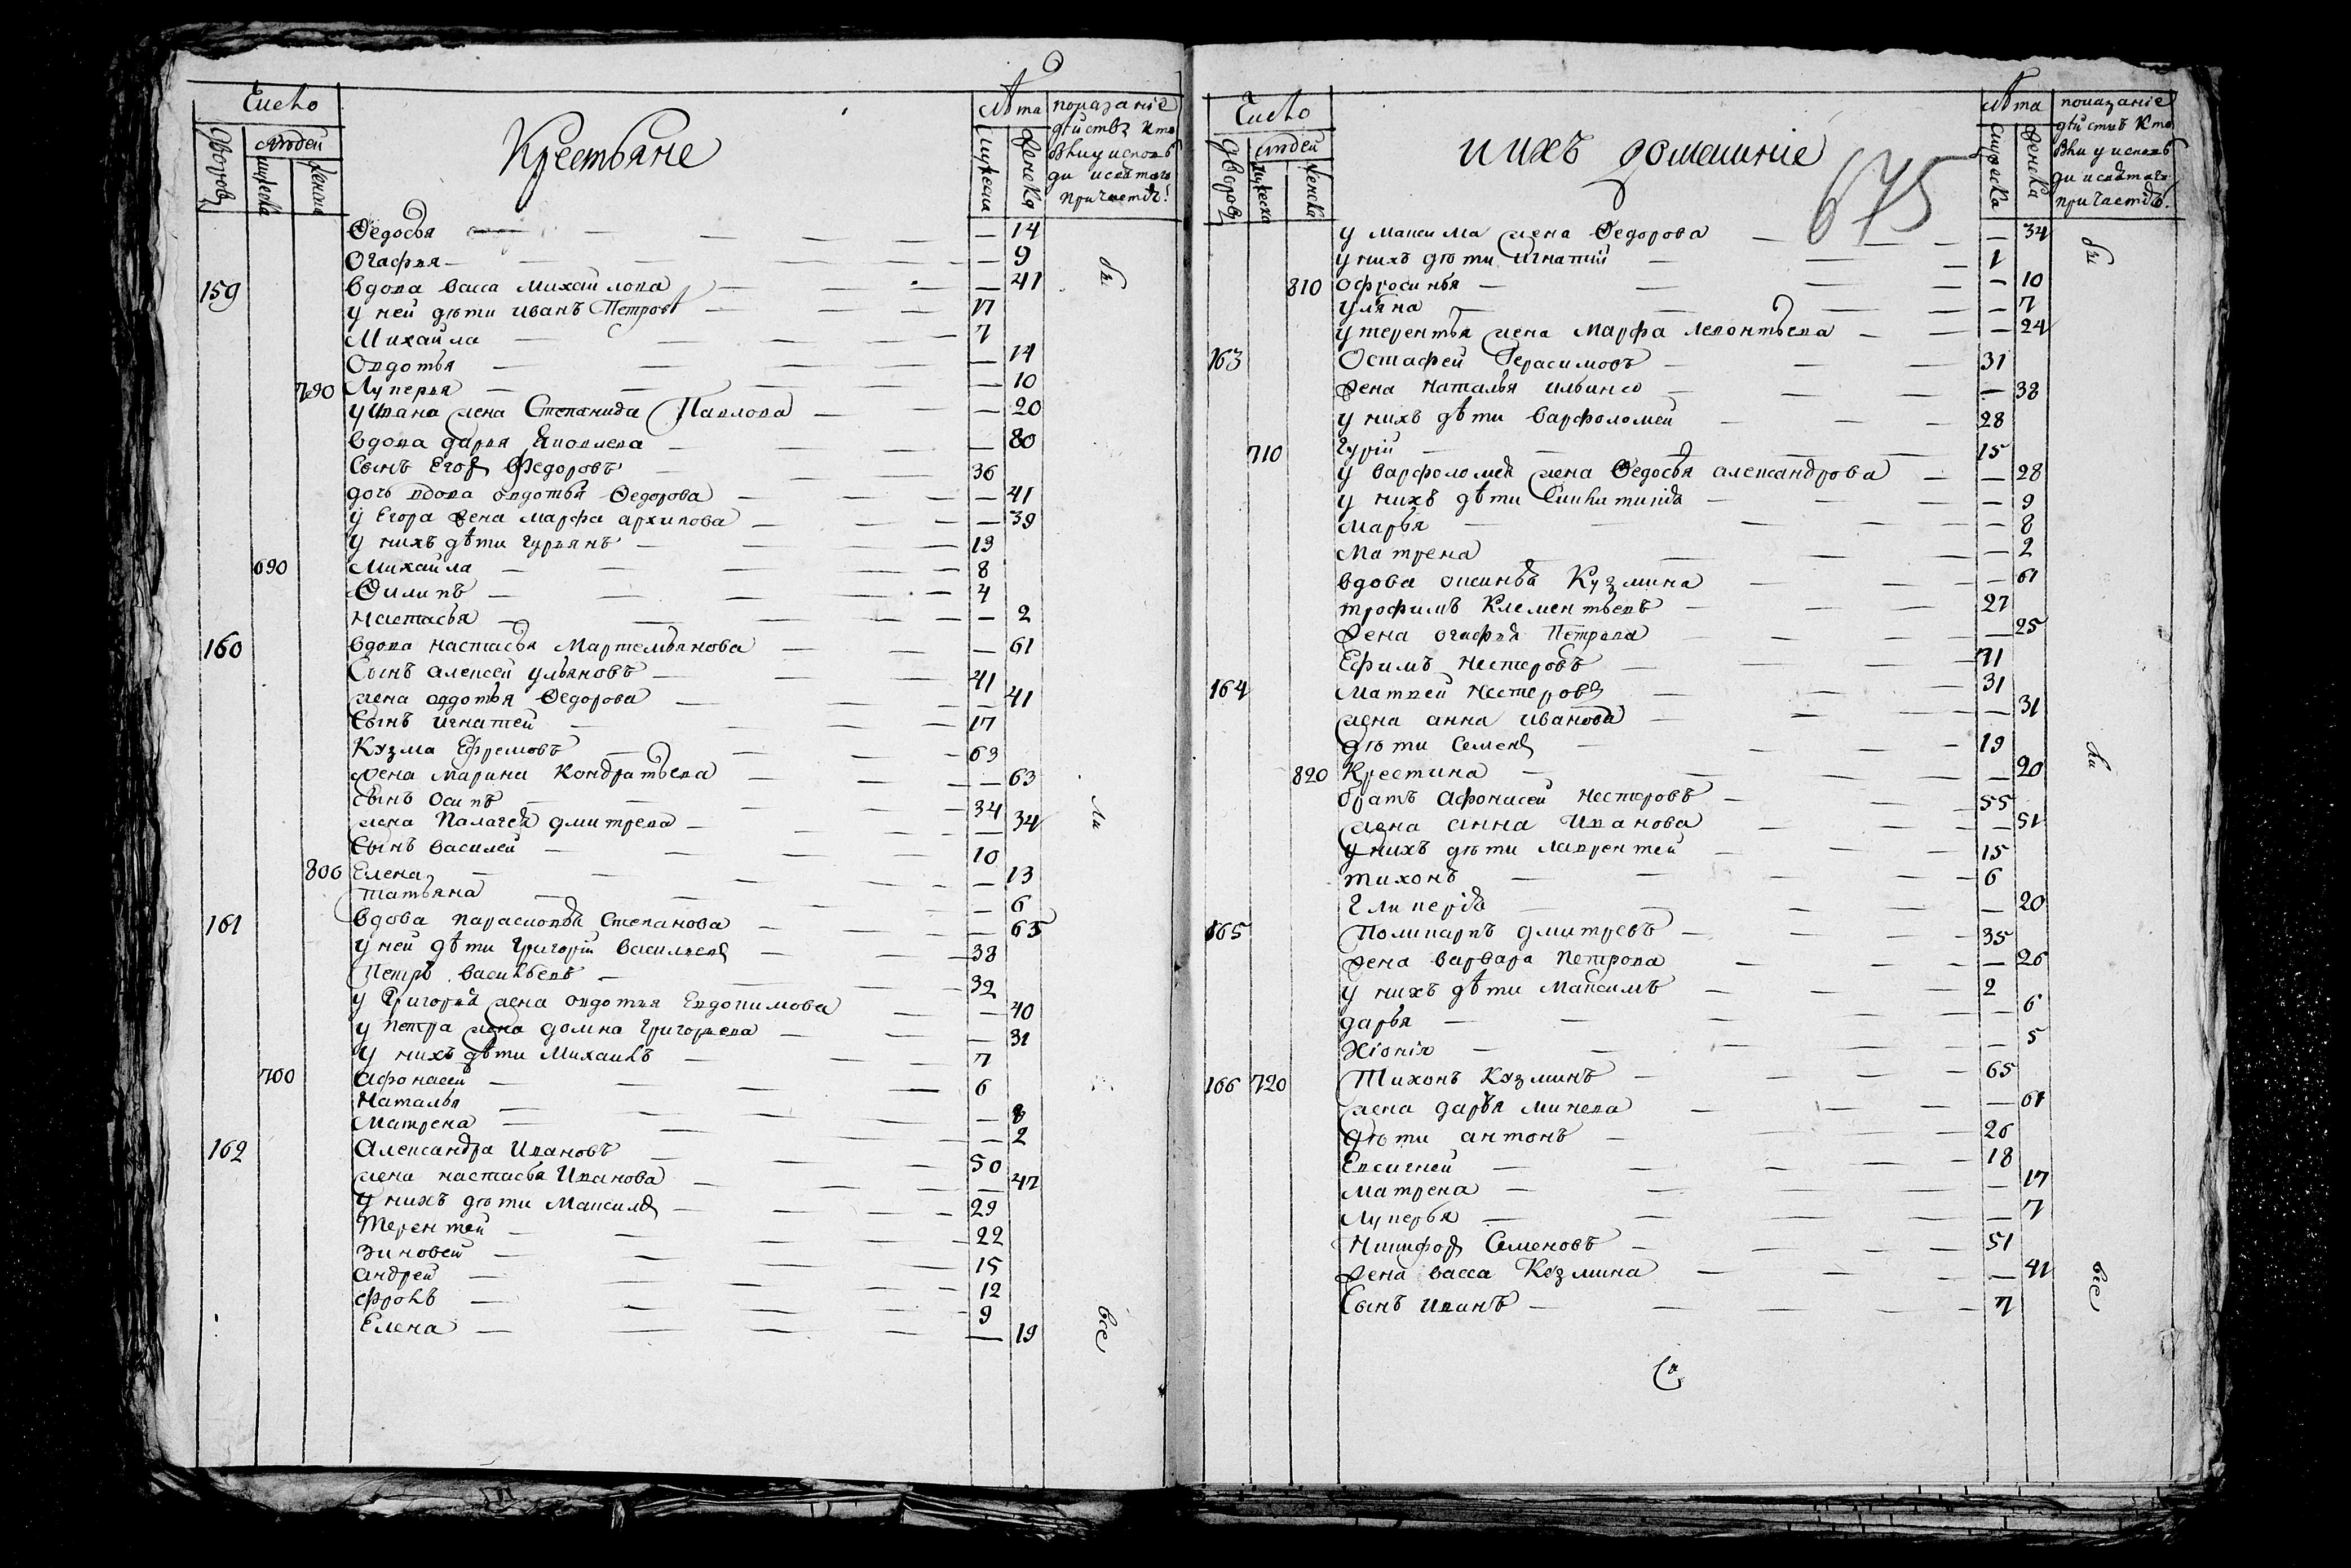 Число
дворовъ
людей
мужеска
женска
Крестьяне
Лѣта
мужеска
женска
показаніе
дѣйствъ кто
былъ у исповѣ
ди и святаго
причастія
Федосья — 14
Огафья — 9
159 вдова васса Михайлова — 41
у ней дѣти иванъ Петровъ 17
Михайла 7
Овдотья — 14
790 Лукерья — 10
у Ивана жена Степанида Павлова — 20
вдова дарья Яковлева — 80
Сынъ Егоръ Федоровъ 36
дочь вдова овдотья Федорова — 41
у Егора жена марфа архипова — 39
у нихъ дѣти гурьянъ 13
690 Михайла 8
Филипъ 4
настасья — 2
160 вдова настасья Мартемьянова — 61
Сынъ алексей ульяновъ 41
жена овдотья Федорова — 41
Сынъ игнатей 17
Кузма Ефремовъ 63
жена марина Кондратьева — 63
сынъ осипъ 34
жена Палагея дмитрева — 34
Сынъ василей 10
800 Елена — 13
татьяна — 6
161 вдова парасковья Степанова — 65
у ней дѣти григорій васильевъ 38
Петръ васильевъ 32
у Григорья жена овдотья Евдокимова — 40
у петра жена домна григорьева — 31
у нихъ дѣти Михаилъ 7
700 афонасей 6
Наталья — 8
Матрена — 2
162 Александра Ивановъ 50
жена настасья Иванова — 47
у нихъ дѣти Максимъ 29
Терентей 22
зиновей 15
андрей 12
фролъ 9
Елена — 19
бы
ли
все
Число
дворовъ
людей
мужеска
женска
и ихъ домашніе
675
Лѣта
мужеска
женска
показаніе
дѣйствъ кто
былъ у исповѣ
ди и святаго
причастія
у максима жена Федорова — 34
у нихъ дѣти игнатій 1
810 офросинья — 10
уляна — 7
у терентья жена марфа леонтьева — 24
163 Остафей Герасимовъ 31
жена наталья ильина — 38
у нихъ дѣти варфоломей 28
710 гурій 15
у варфоломея жена Федосья александрова — 28
у нихъ дѣти — 9
марья — 8
матрена — 2
вдова аксинья Кузмина — 61
трофимъ Клементьевъ 27
жена огафья Петрова — 25
Ефимъ нестеровъ 71
164 матвей нестеровъ 31
жена анна иванова — 31
дѣти семенъ 19
820 Крестина — 20
братъ афонасей нестеровъ 55
жена анна Иванова — 51
у нихъ дѣти лаврентей 15
тихонъ 6
гликерія — 20
165 Поликарпъ дмитревъ 35
жена варвара петрова — 26
у нихъ дѣти Максимъ 2
дарья — 6
Хіонія — 5
166 720 Тихонъ Кузминъ 65
жена дарья минева — 61
дѣти антонъ 26
Евсигней 18
матрена — 17
лукерья — 7
Никифоръ Семеновъ 51
жена васса Кузмина — 41
Сынъ иванъ 7
бы
ли
все